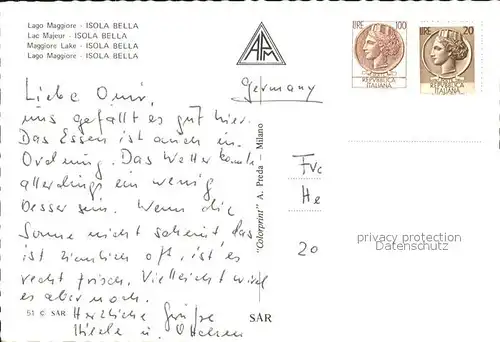 Lago Maggiore - ISOLA BELLA
Lac Majeur - ISOLA BELLA
Maggiore Lake - ISOLA BELLA
Lago Maggiore - ISOLA BELLA
APM
LIRE 100
REPVBBLICA
ITALIANA
LIRE 20
REPVBBLICA
ITALIANA
Germany
Liebe Omi,
uns gefällt es gut hier.
Das Essen ist auch in
Ordnung. Das Wetter könnte
allerdings ein wenig
besser sein. Wenn die
Sonne nicht scheint das
ist ziemlich oft, ist es
recht frisch. Vielleicht wird
es aber noch.
Herzliche Grüße
u.
"Colorprint" A. Preda - Milano
Fra
He
20
privacy protection
Datenschutz
51 C SAR
SAR